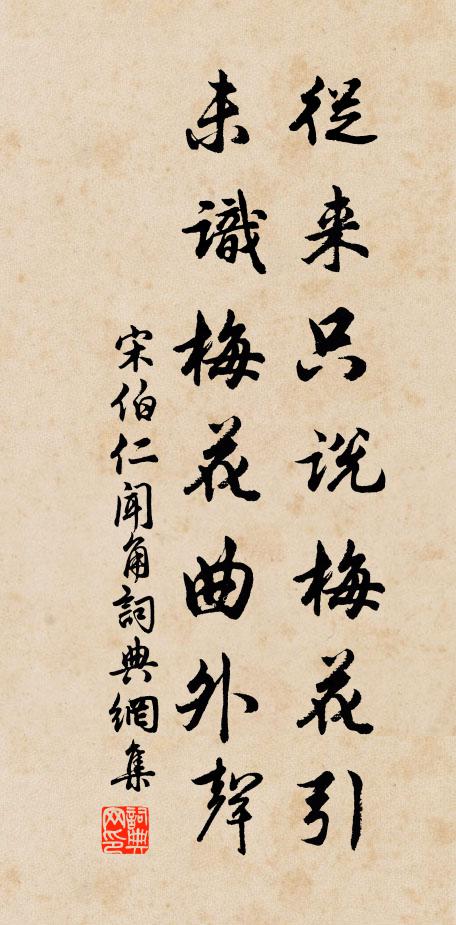 從来只説梅花引
未識梅花曲外聲
宋伯仁聞角詞典網集
詞典网印